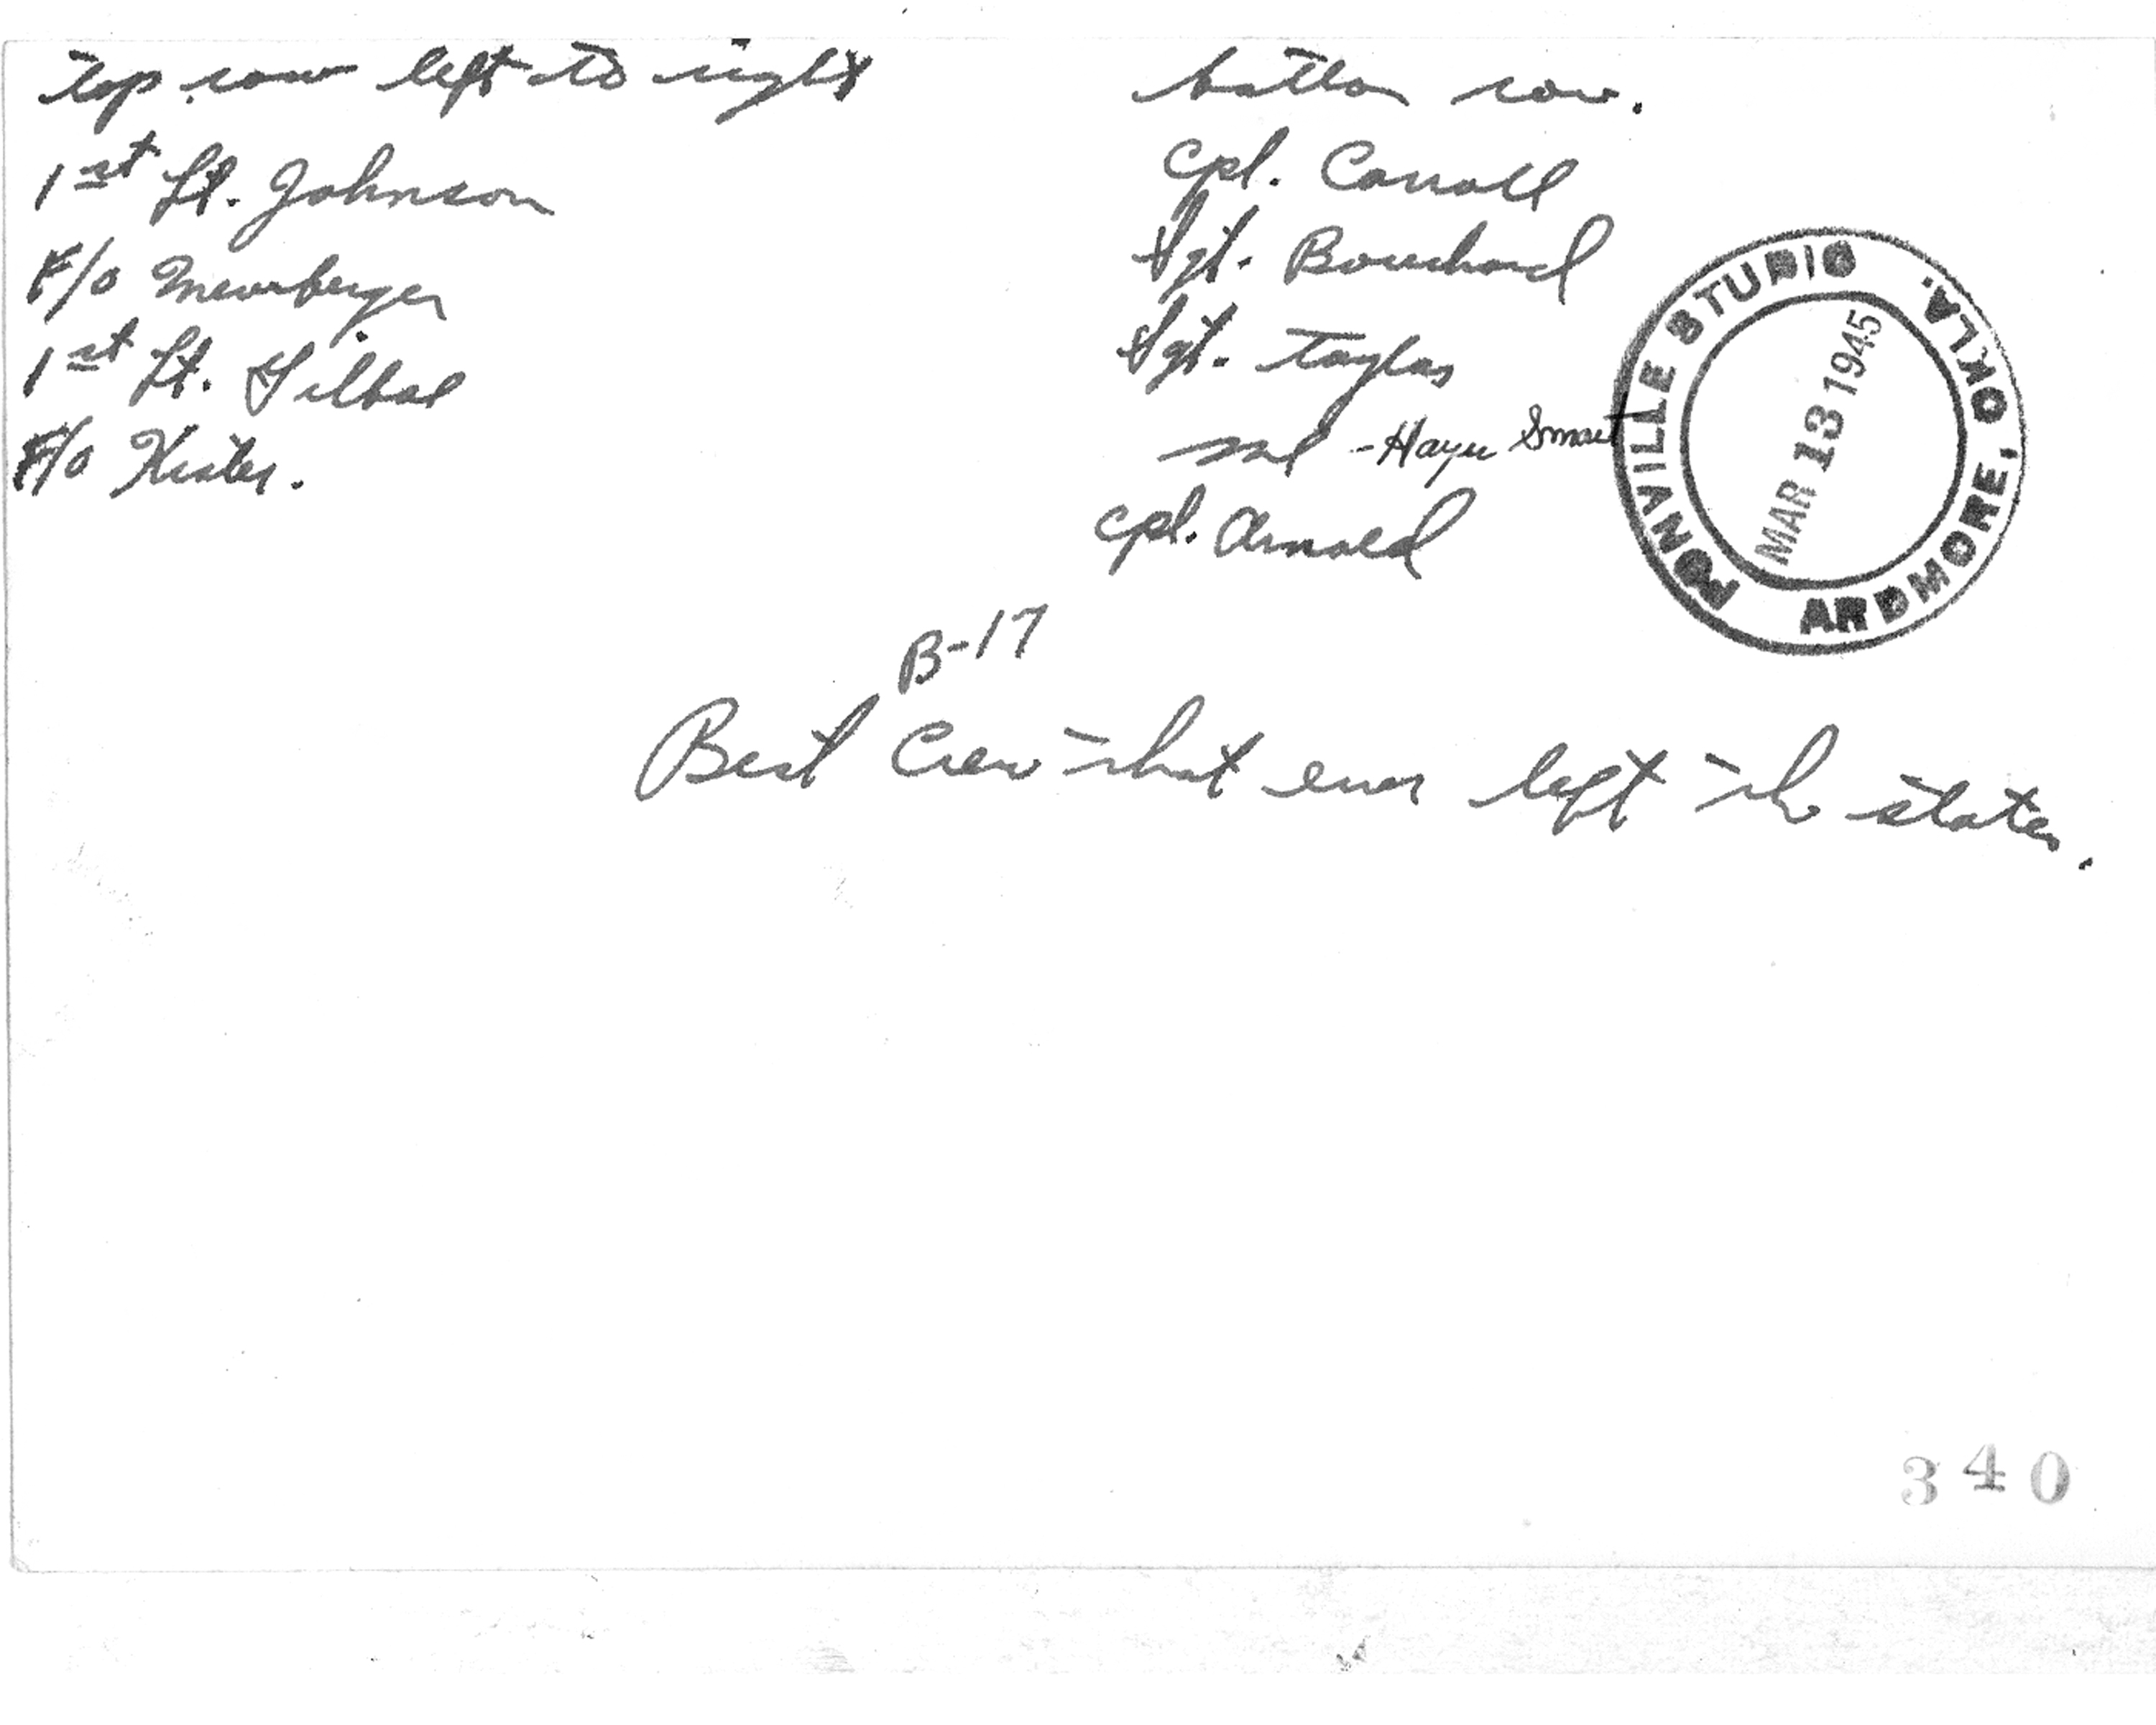 top row left to right
1st Lt. Johnson
F/O
1st Lt.
F/O
bottom row.
Cpl. Carroll
Sgt. Bouchard
Sgt. Taylor
me - Smart
Cpl. Arnold
PONVILLE STUDIO
ARDMORE, OKLA.
MAR 13 1945
B-17
Best Crew that ever left the states.
340